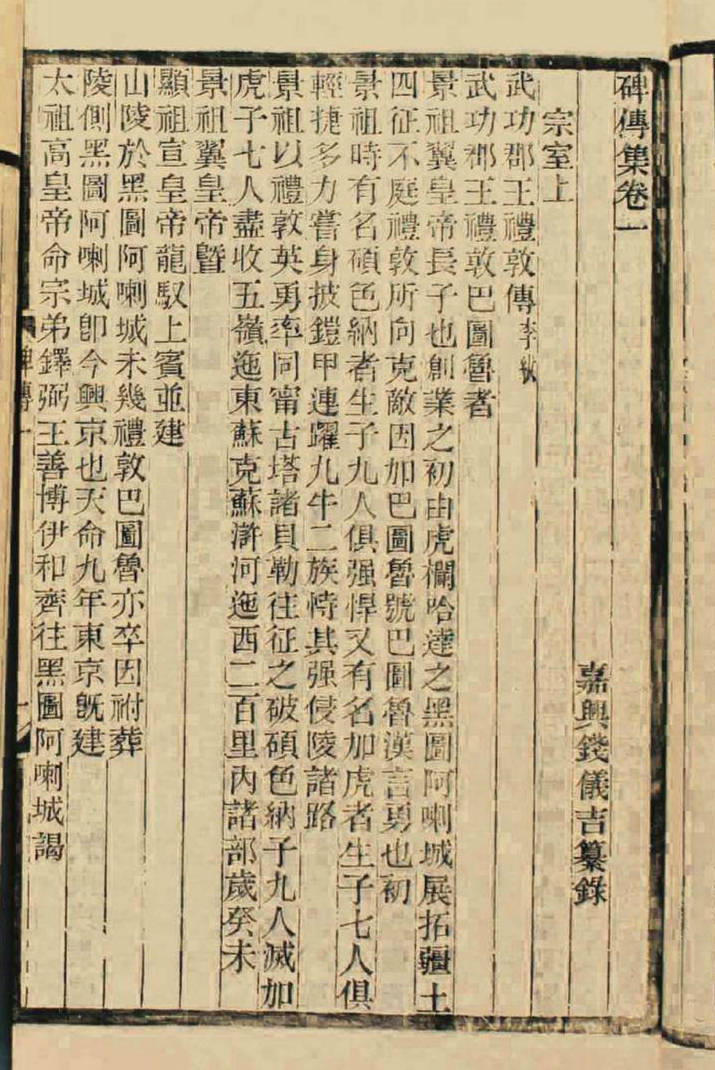 碑傳集卷一
嘉興錢儀吉纂錄
宗室上
武功郡王禮敦傳李紱
武功郡王禮敦巴圖魯者
景祖翼皇帝長子也創業之初由虎欄哈達之黑圖阿喇城展拓疆土
四征不庭禮敦所向克敵因加巴圖魯號巴圖魯漢言勇也初
景祖時有名碩色納者生子九人俱强悍又有名加虎者生子七人俱
輕捷多力嘗身披鎧甲連躍九牛二族恃其强侵陵諸路
景祖以禮敦英勇率同甯古塔諸貝勒往征之破碩色納子九人滅加
虎子七人盡收五嶺迤東蘇克蘇滸河迤西二百里內諸部歲癸未
景祖翼皇帝暨
顯祖宣皇帝龍馭上賓並建
山陵於黑圖阿喇城未幾禮敦巴圖魯亦卒因祔葬
陵側黑圖阿喇城卽今興京也天命九年東京旣建
太祖高皇帝命宗弟鐸弼王善博伊和齊往黑圖阿喇城謁
碑傳一